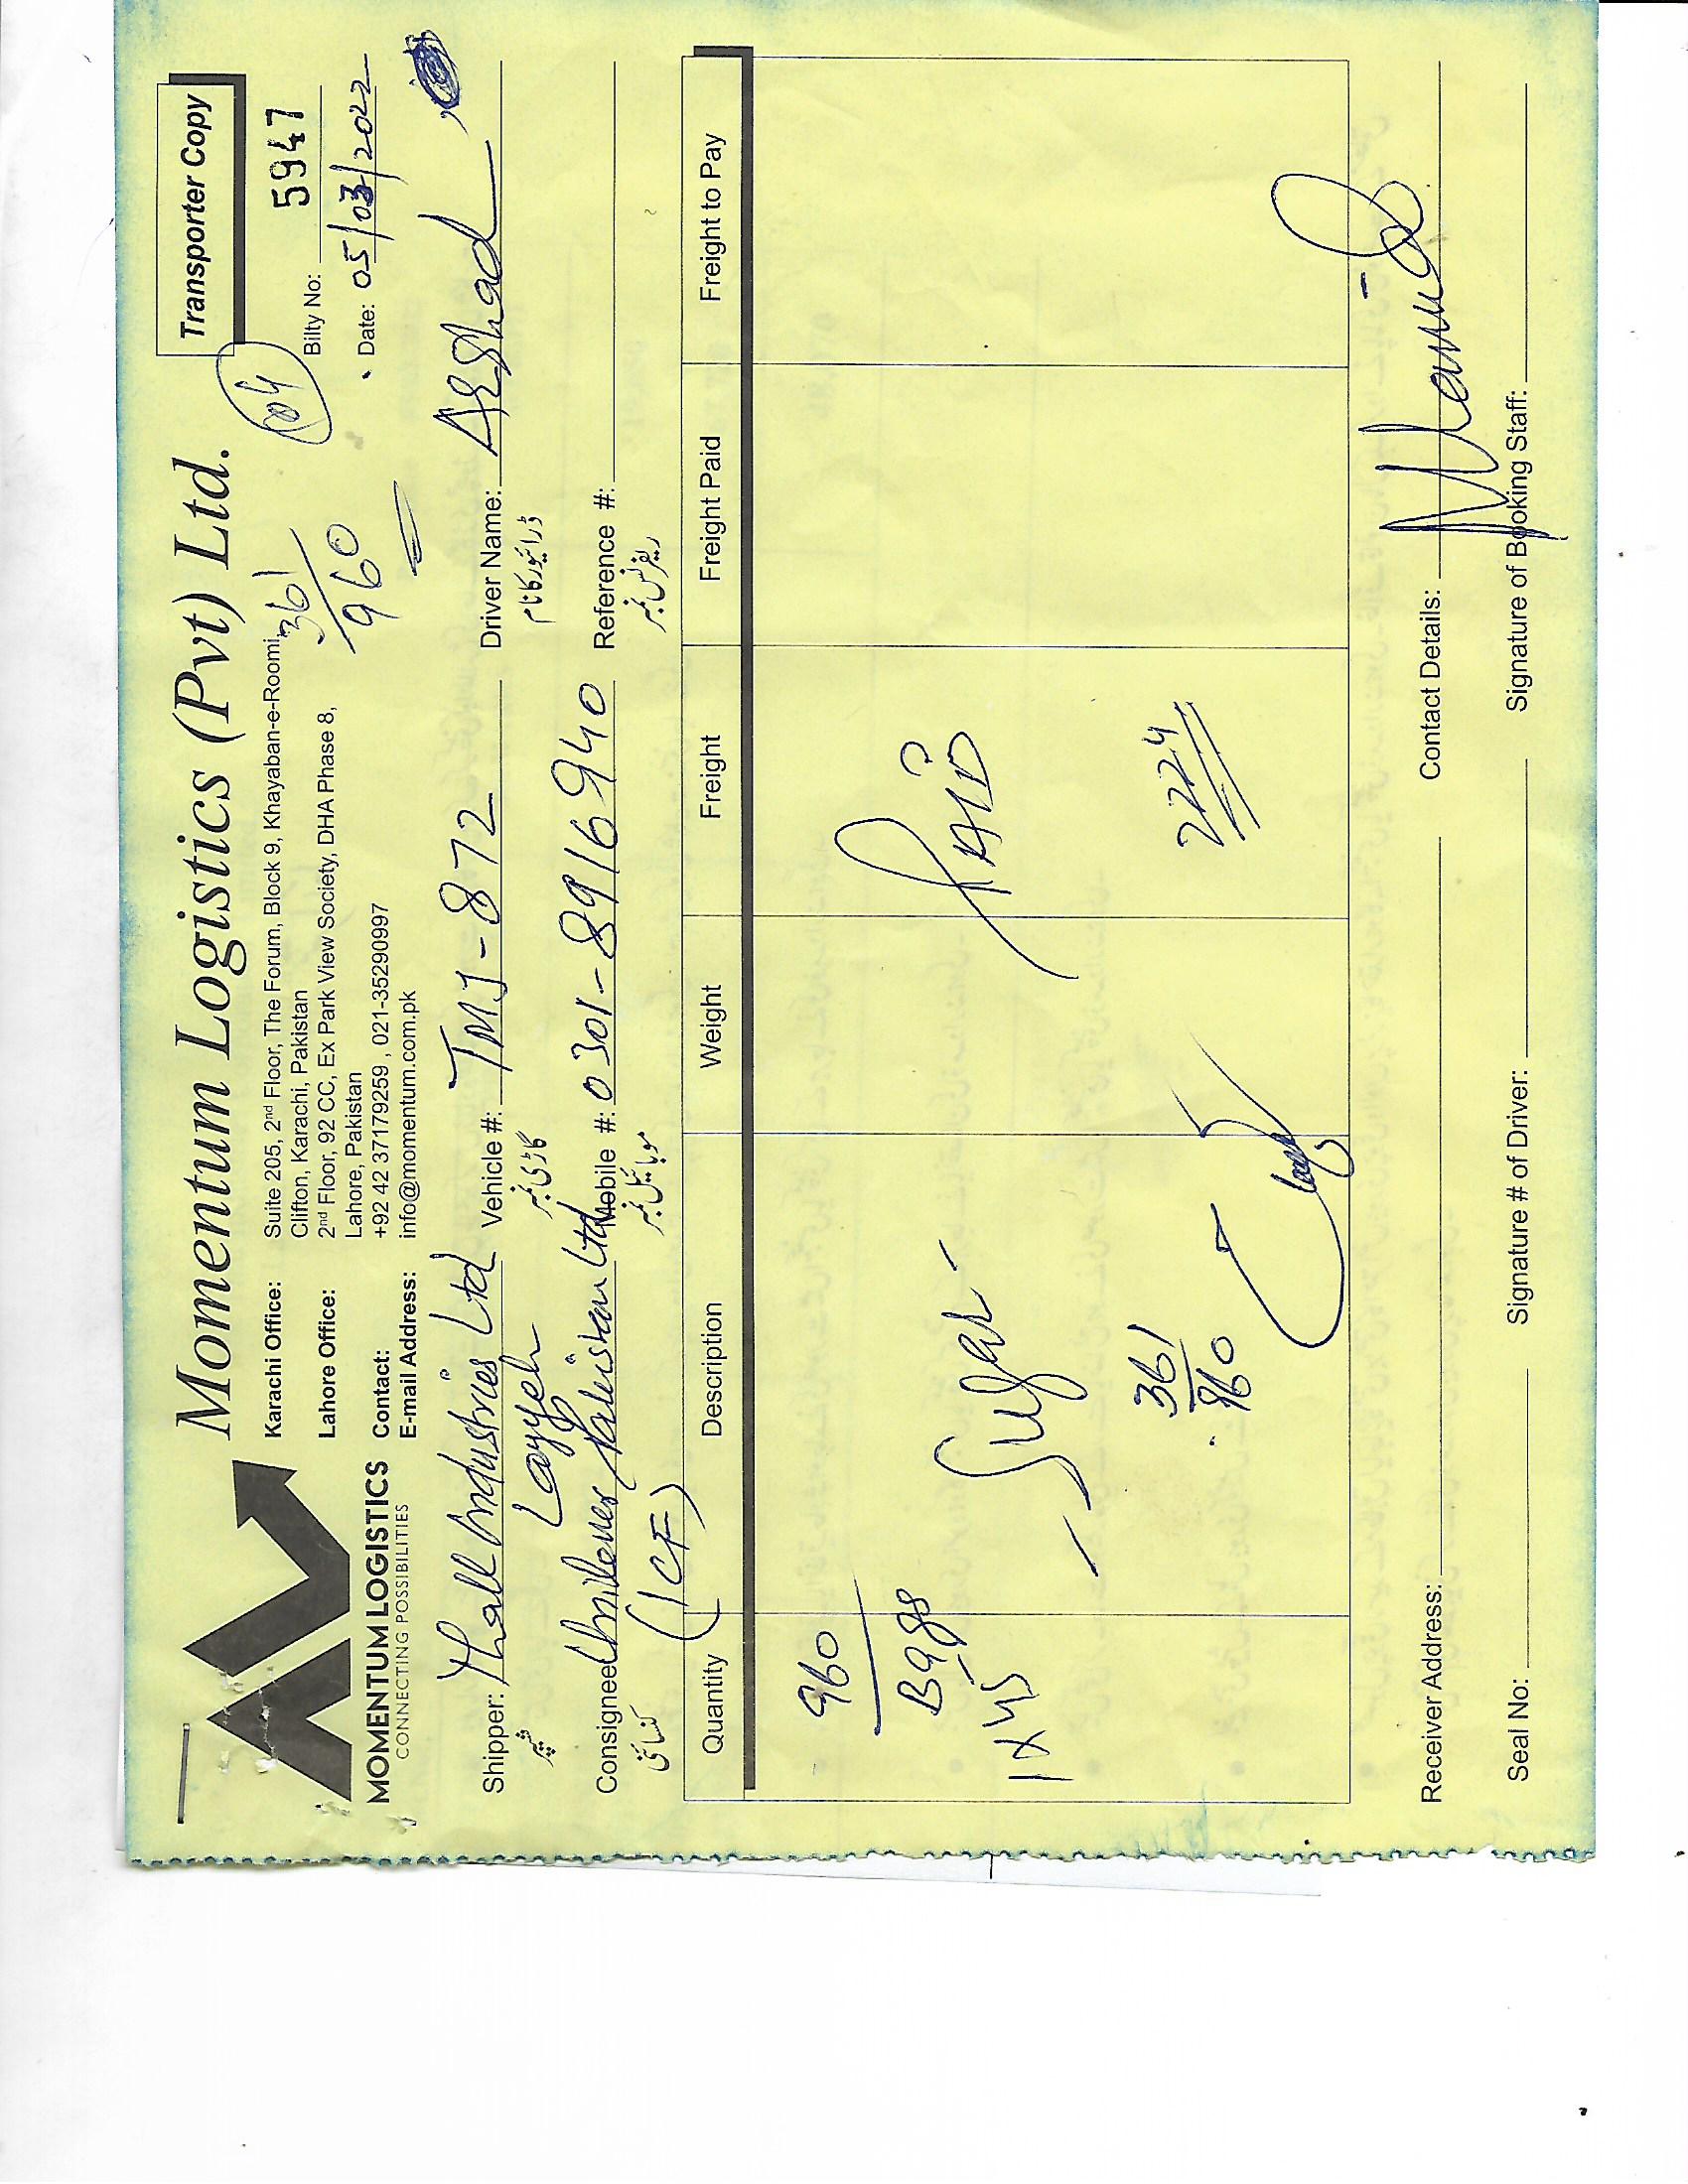 Momentum Logistics (Pvt) Ltd.
Transporter Copy
MOMENTUM LOGISTICS
CONNECTING POSSIBILITIES
Karachi Office: Suite 205, 2nd Floor, The Forum, Block 9, Khayaban-e-Roomi,
Clifton, Karachi, Pakistan
Lahore Office: 2nd Floor, 92 CC, Ex Park View Society, DHA Phase 8,
Lahore, Pakistan
Contact: +92 42 37179259 , 021-35290997
E-mail Address: info@momentum.com.pk
361
960
04
Bilty No: 5947
Date: 05/03/2022
Shipper: Thall Industries Ltd Vehicle #: TMJ-872 Driver Name: Arshad
شیپر Layyah گاڑی نمبر ڈرائیور کا نام
Consignee Unilever Pakistan Ltd Mobile #: 0301-8916940 Reference #:
کنسائنی (ICF) موبائیل نمبر ریفرنس نمبر
Quantity Description Weight Freight Freight Paid Freight to Pay
960
Bags
1x45
- Sugar -
PAID
361
960
2224
Receiver Address: Contact Details:
Seal No: Signature # of Driver: Signature of Booking Staff: